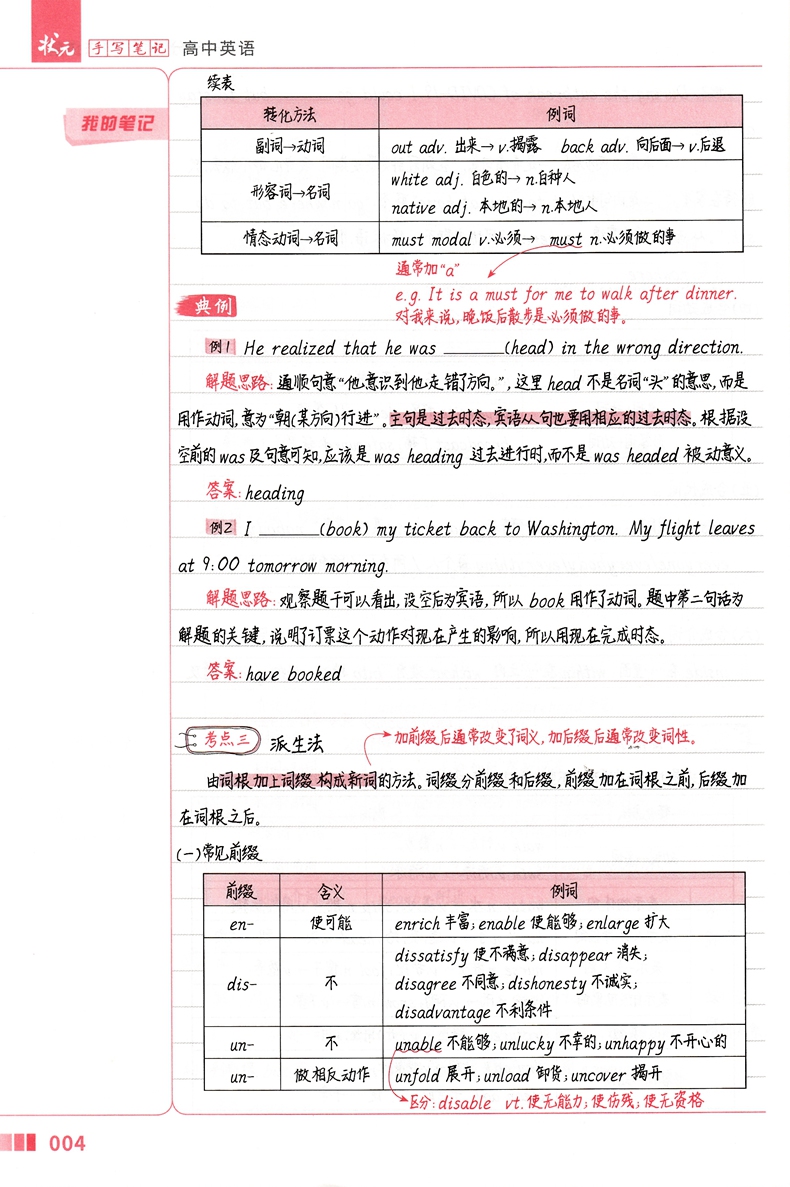 状元 手写笔记 高中英语
我的笔记
续表
转化方法 例词
副词→动词 out adv. 出来→ v.揭露 back adv. 向后面→ v.后退
形容词→名词 white adj. 白色的→ n.白种人
native adj. 本地的→ n.本地人
情态动词→名词 must modal v.必须→ must n.必须做的事
通常加“a”
e.g. It is a must for me to walk after dinner.
对我来说,晚饭后散步是必须做的事。
典例
例1 He realized that he was ______(head) in the wrong direction.
解题思路:通顺句意“他意识到他走错了方向。”,这里head不是名词“头”的意思,而是
用作动词,意为“朝(某方向)行进”。主句是过去时态,宾语从句也要用相应的过去时态。根据设
空前的was及句意可知,应该是was heading过去进行时,而不是was headed被动意义。
答案:heading
例2 I ______(book) my ticket back to Washington. My flight leaves
at 9:00 tomorrow morning.
解题思路:观察题干可以看出,设空后为宾语,所以book用作了动词。题中第二句话为
解题的关键,说明了订票这个动作对现在产生的影响,所以用现在完成时态。
答案:have booked
考点三 派生法 加前缀后通常改变了词义,加后缀后通常改变词性。
由词根加上词缀构成新词的方法。词缀分前缀和后缀,前缀加在词根之前,后缀加
在词根之后。
(一)常见前缀
前缀 含义 例词
en- 使可能 enrich丰富;enable使能够;enlarge扩大
dis- 不 dissatisfy使不满意;disappear消失;
disagree不同意;dishonesty不诚实;
disadvantage不利条件
un- 不 unable不能够;unlucky不幸的;unhappy不开心的
un- 做相反动作 unfold展开;unload卸货;uncover揭开
区分:disable vt.使无能力;使伤残;使无资格
004